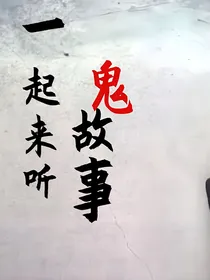 一起来听
鬼故事